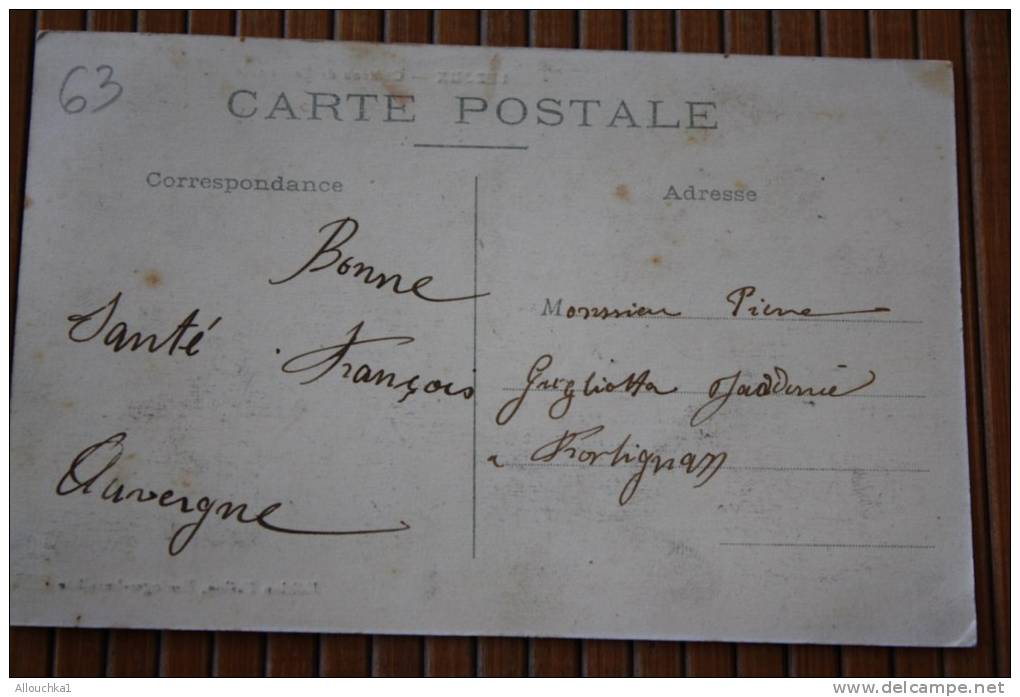 63
CARTE POSTALE
Correspondance
Adresse
Bonne
Santé . François
Auvergne
Monssieu Pierre
Gugliotta Jardinié
a Frontignan
Allouchka1
www.delcampe.net